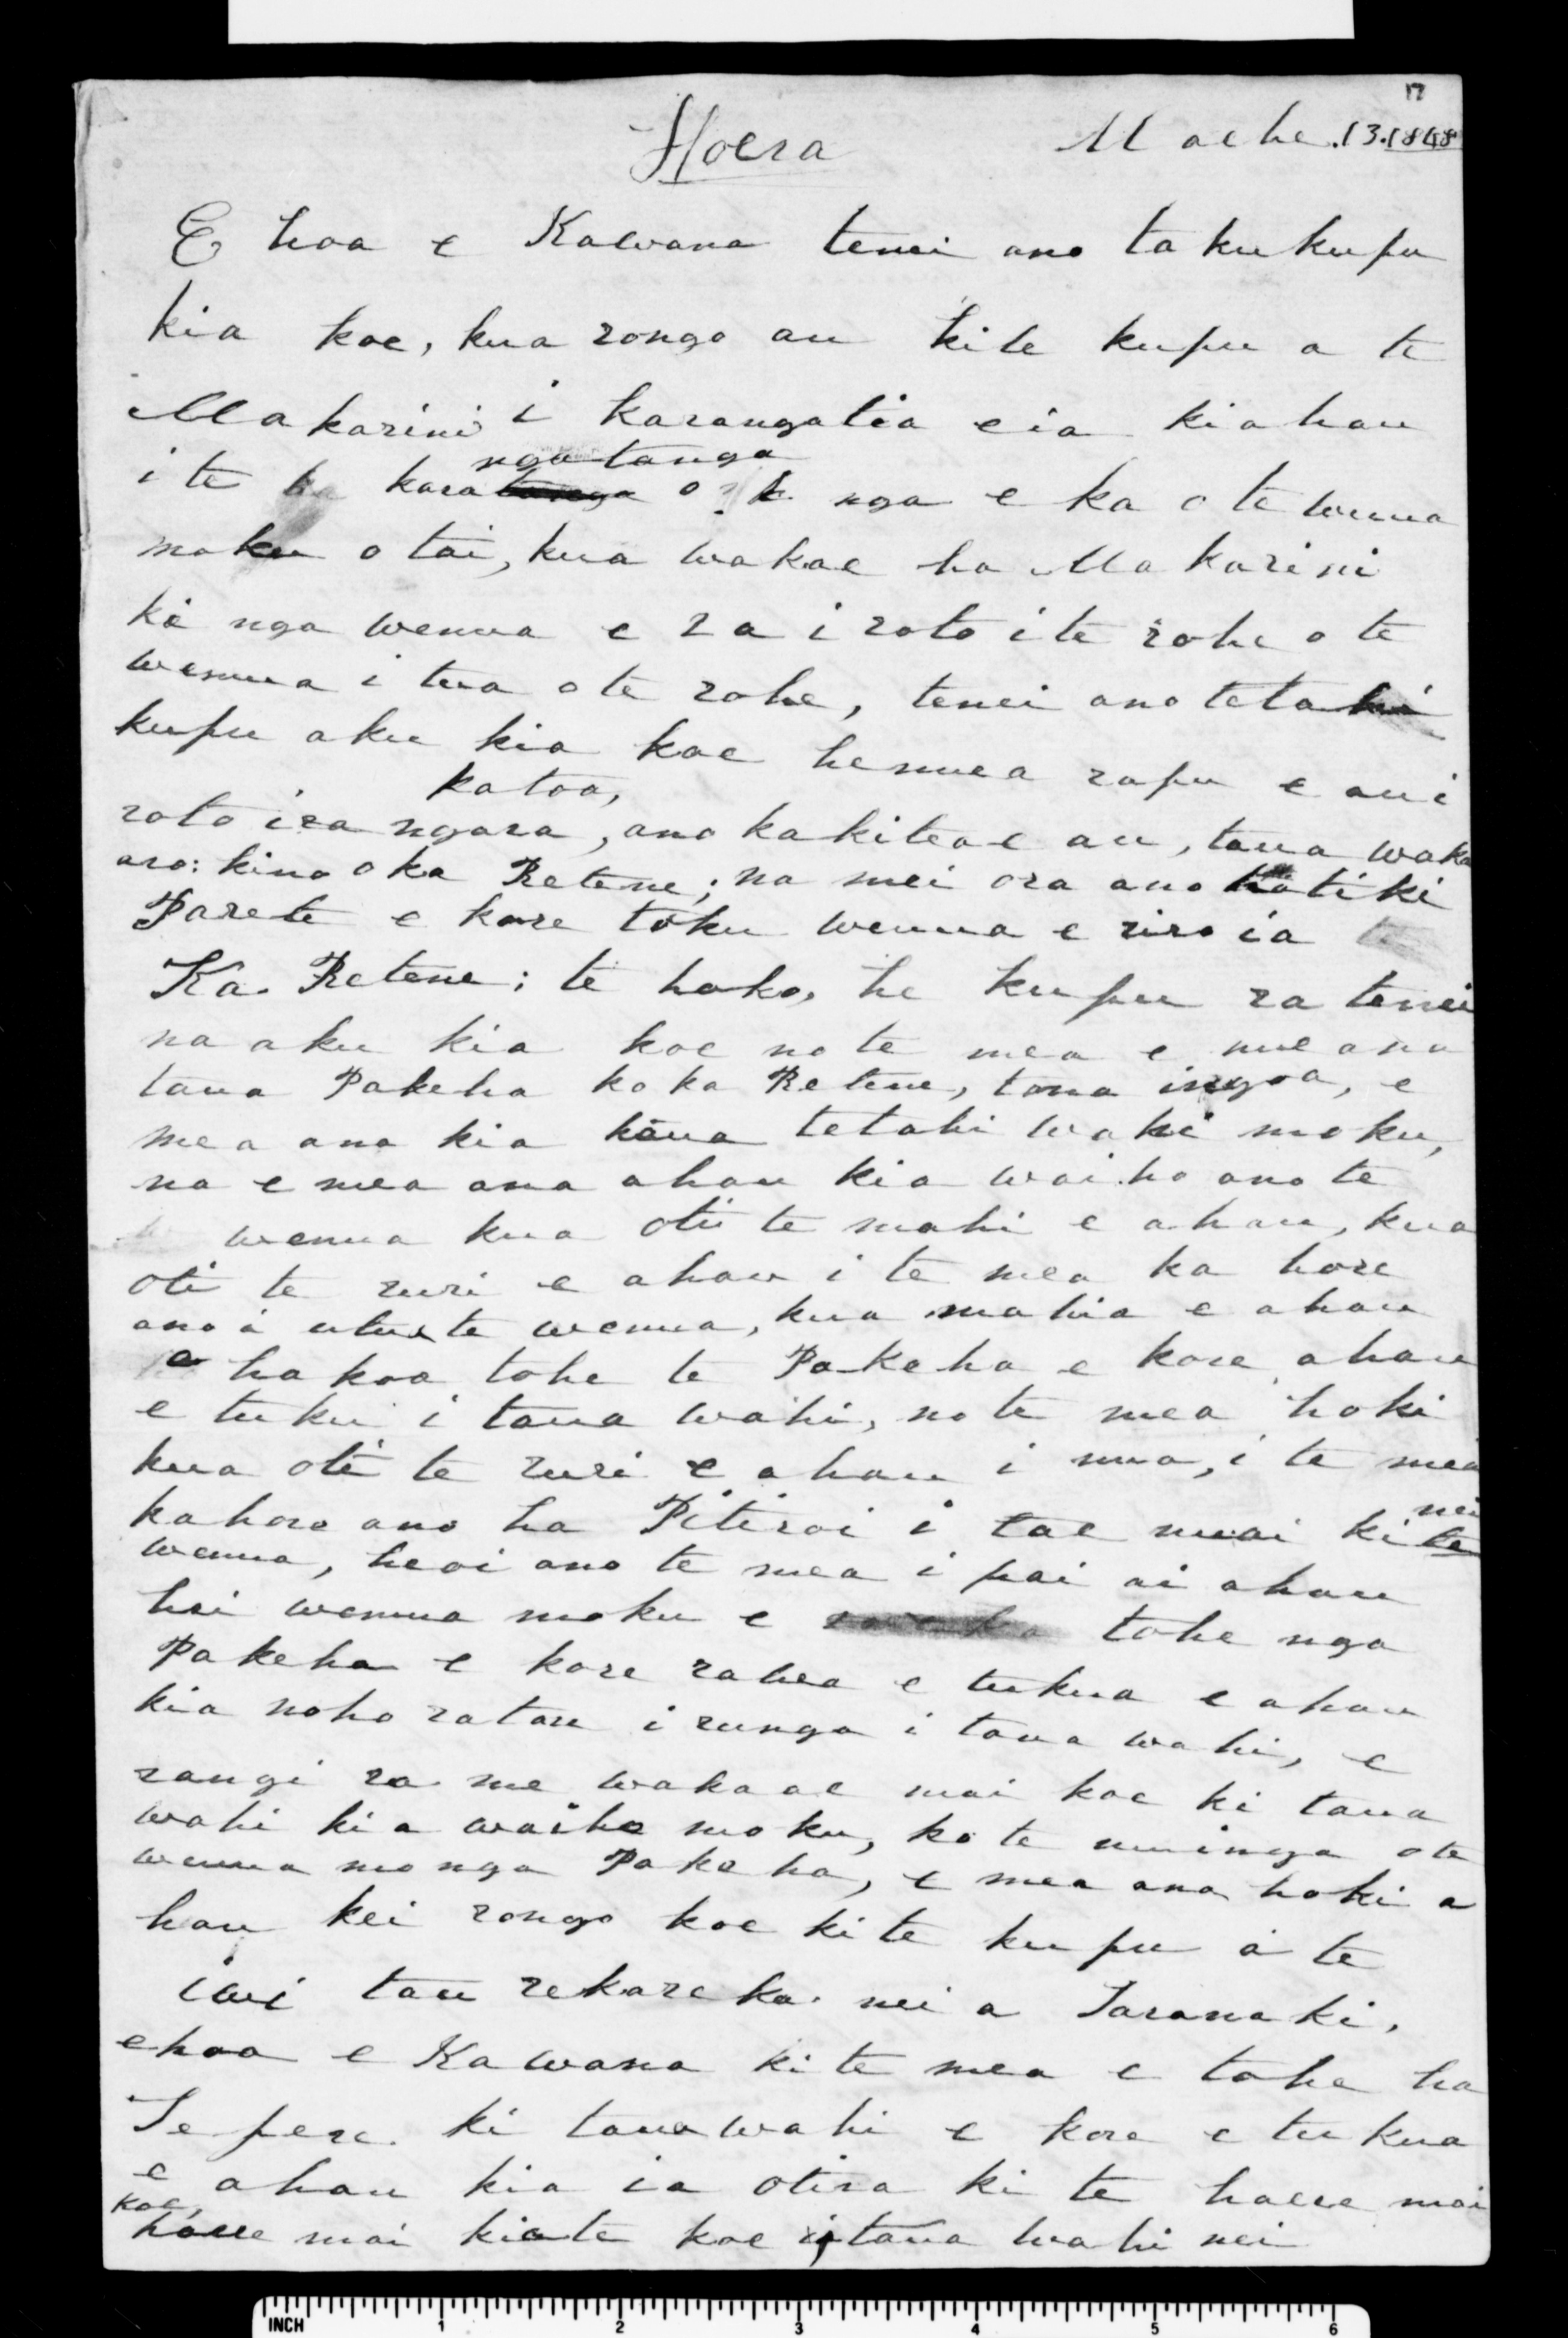 17
Hoera Maehe .13.1848
E hoa e Kawana tenei ano ta ku kupu
kia koe, kua rongo au kite kupu a te
Makarini i karangatia e ia kiahau
ngatanga
i te kara o nga e ka o te wenua
moku o tai, kua wakae ha Makarini
ki nga wenua e ra i roto i te rohe o te
wenua i tua o te rohe, tenei ano tetahi
kupu aku kia koe henuea rapu e au i
katoa,
roto ira ngara, ano kakitea e au, taua waka
aro: kino o ka Retene; na mei ora ano
Parete e kore toku wenua e riro ia
Ka. Retene; te hoko, he kupu ra tenei
na aku kia koe no te mea e nue ana
taua Pakeha ko ka Retene, tona ingoa, e
mea ana kia kaua tetahi wahi moku,
na e mea ana ahau kia waiho ano te
wenua kua oti te mahi e ahau, kua
oti te ruri e ahau i te mea ka hore
ano i utua te wenua, kua mahia e ahau
a ha koa tohe te Pakeha e kore ahau
e tuku i taua wahi, no te mea hoki
kua oti te ruri e ahau i mua, i te mea
nei
kahore ano ha Pitiroi i tae mai ki te
wenua, heoi ano te mea i pai ai ahau
hei wenua moku e tohe nga
Pakeha e kore rawa e tukua e ahau
kia noho ratou i runga i taua wahi, e
rangi ra me wakaae mai koe ki taua
wahi kia waiho moku, ko te nuinga ote
wenua mo nga Pakeha, e mea ana hoki a
hau kei rongo koe ki te kupu a te
iwi tau rekareka nei a Taranaki,
ehoa e Kawana ki te mea e tohe ha
Te pere. ki taua wahi e kore e tukua
e ahau kia ia otira ki te haere mai
koe,
haere mai kiate koe i taua wahi nei